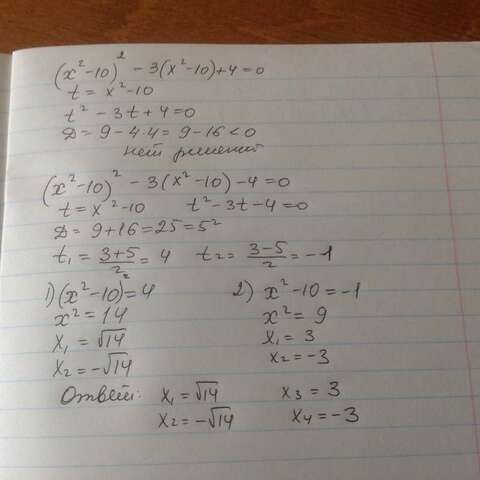 (x²-10)² - 3(x²-10)+4=0
t = x²-10
t² - 3t+4=0
D = 9-4·4= 9-16 <0
нет решений
(x²-10)² - 3(x²-10)-4=0
t=x²-10 t²-3t-4=0
D=9+16=25=5²
t₁=(3+5)/2=4 t₂=(3-5)/2=-1
1) (x²-10)=4 2) x²-10=-1
x²=14 x²=9
x₁=√14 x₁=3
x₂=-√14 x₂=-3
Ответ: x₁=√14 x₃=3
x₂=-√14 x₄=-3